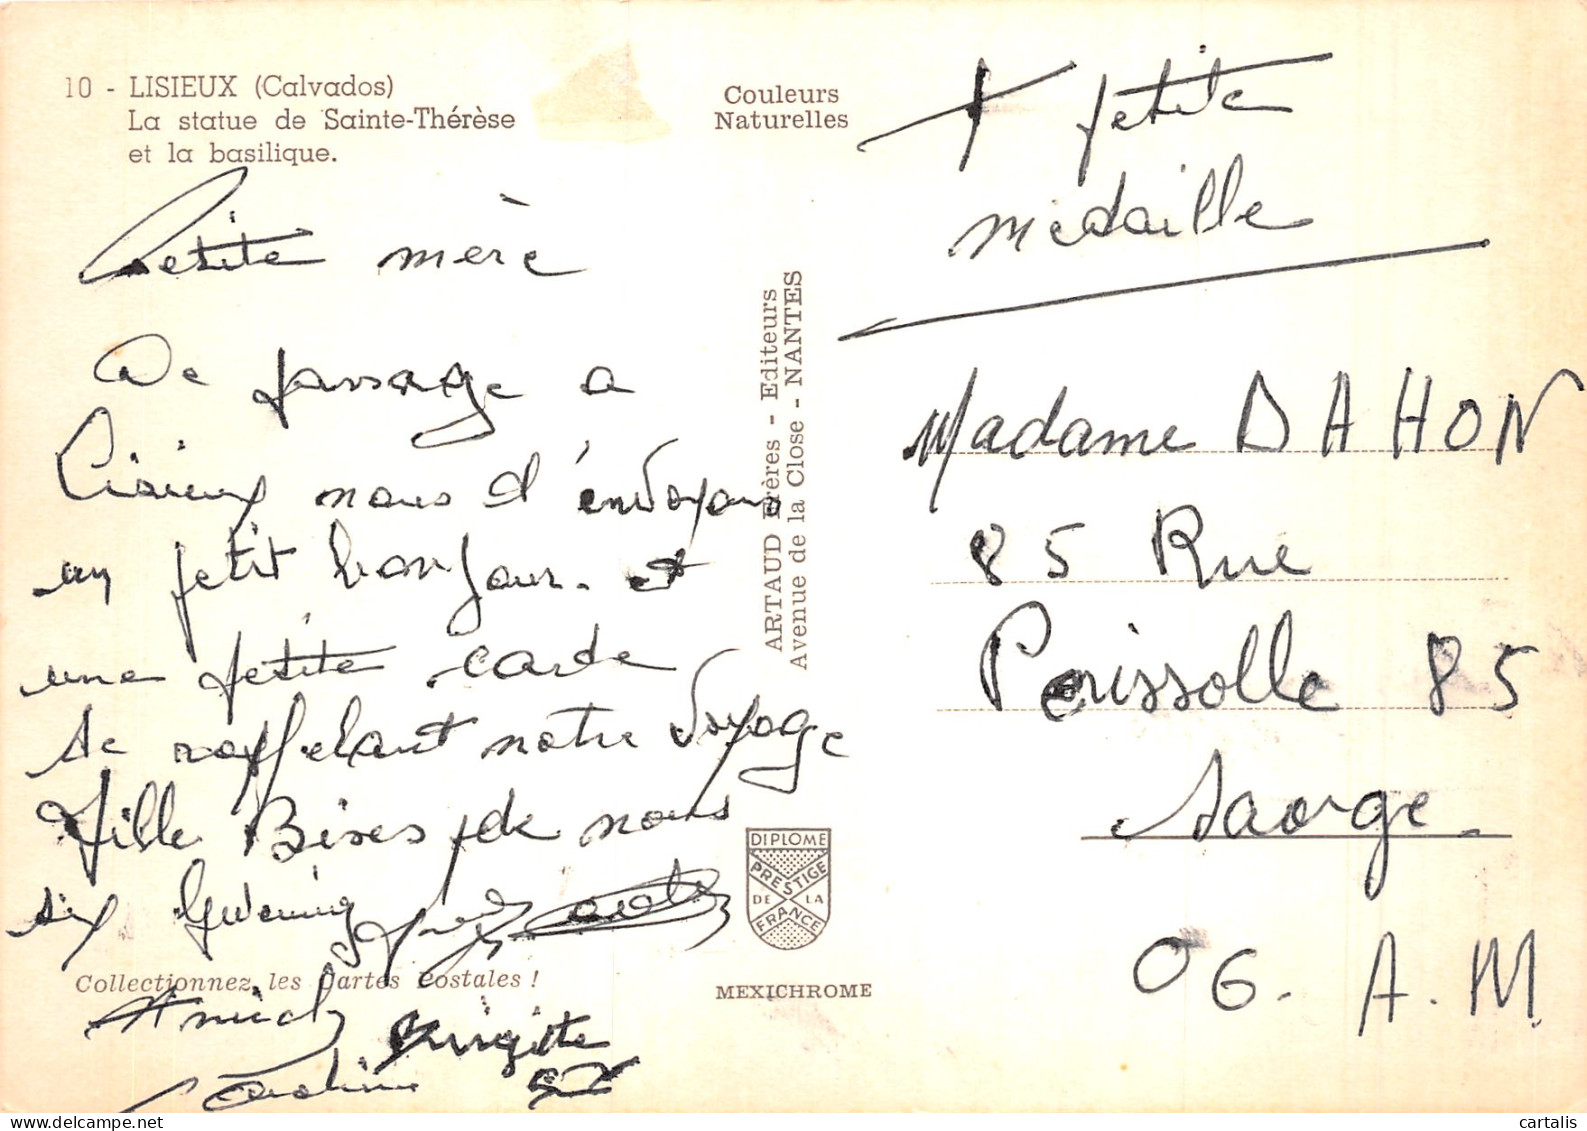 10 - LISIEUX (Calvados)
La statue de Sainte-Thérèse
et la basilique.
Petite mère
De passage a
Lisieux nous d'envoyons
un petit bonjour. et
une petite carte
te rappelant notre voyage
Mille Bises de nous
six
Annick
Brigitte
Collectionnez les Cartes Postales !
Couleurs
Naturelles
ARTAUD Frères - Editeurs
Avenue de la Close - NANTES
DIPLOME
PRESTIGE
DE LA
FRANCE
MEXICHROME
+ petite
médaille
Madame DAHON
85 Rue
Périssolle 85
Saorge.
06. A.M
cartalis